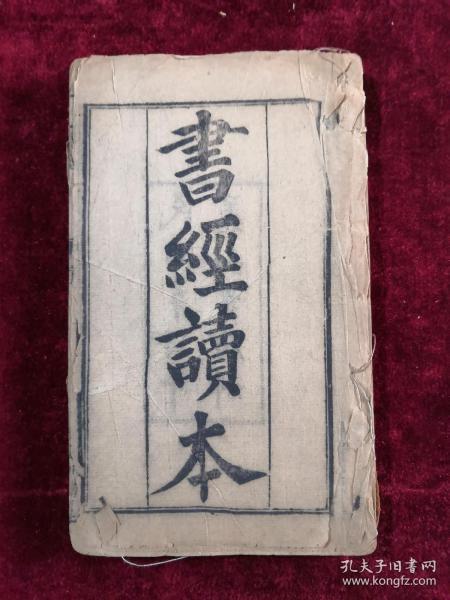 書經讀本
孔夫子旧书网
www.kongfz.com